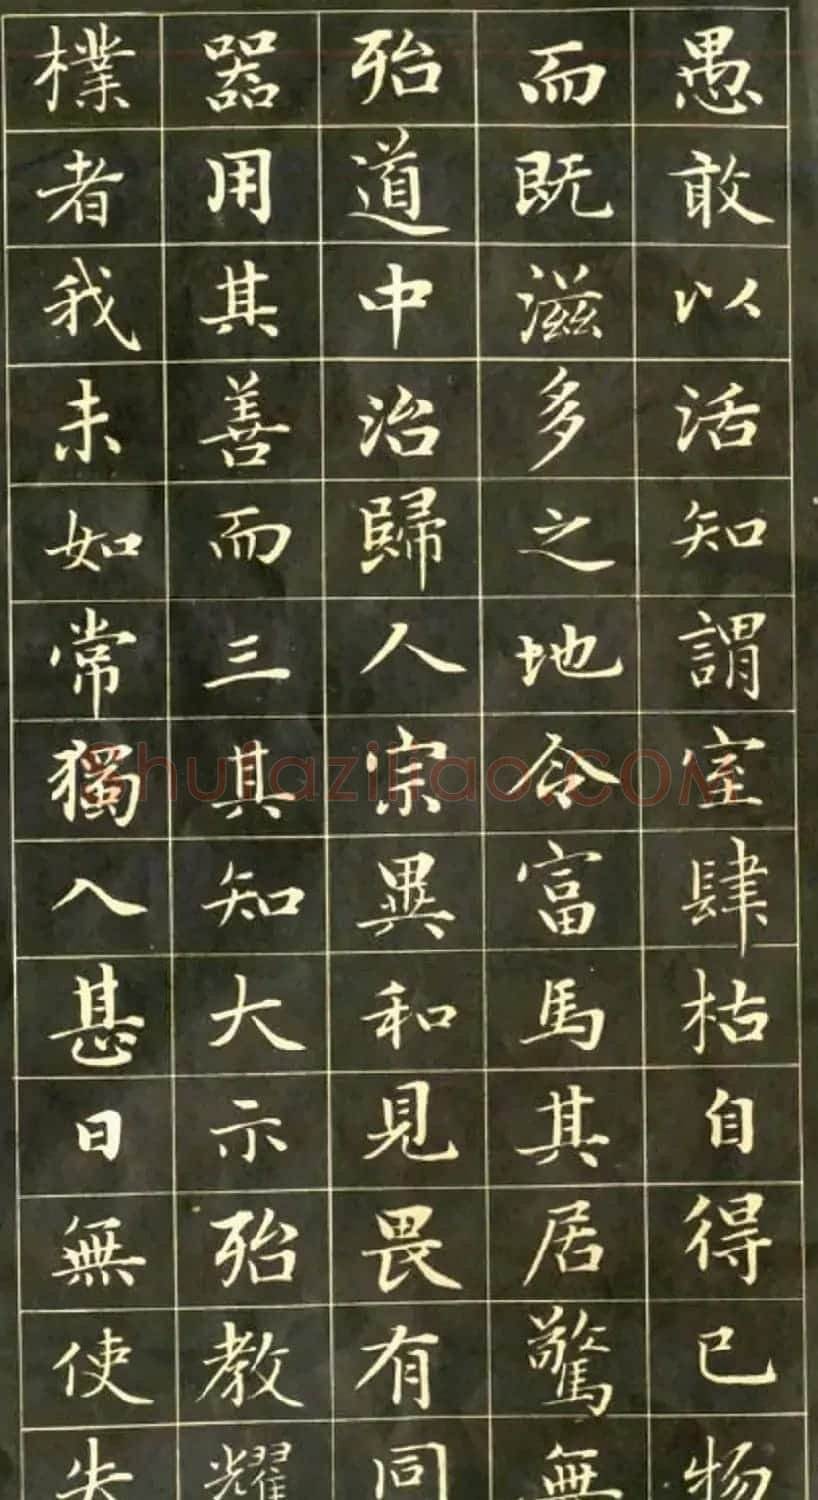 愚敢以活知謂室肆枯自得已物
而既滋多之地令富馬其居驚無
殆道中治歸人宗異和見畏有同
器用其善而三其知大示殆教耀
樸者我未如常獨入甚日無使失
shufaziliao.COM